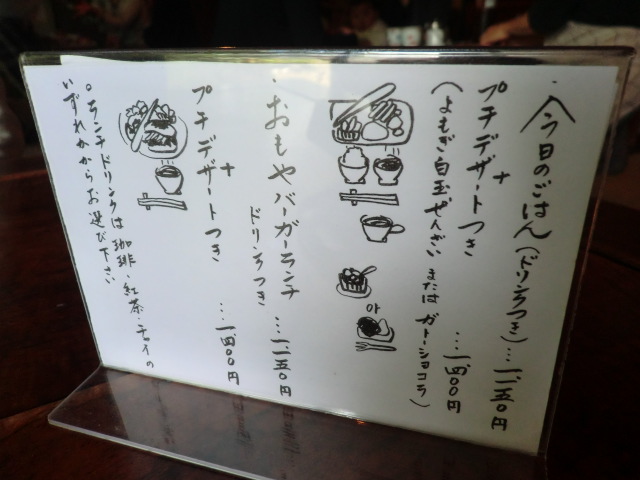 ・今日のごはん(ドリンクつき)…一、一五〇円
+
プチデザートつき …一、四〇〇円
(よもぎ白玉ぜんざい または ガトーショコラ)
or
・おもやバーガーランチ …一、一五〇円
ドリンクつき
+
プチデザートつき …一、四〇〇円
○ランチドリンクは珈琲・紅茶・チャイの
いずれかからお選び下さい